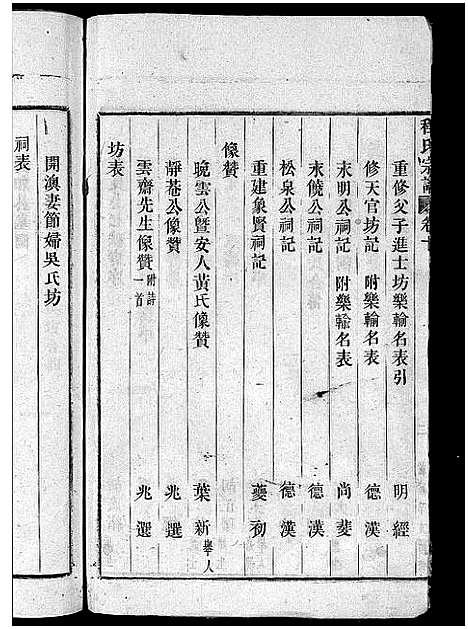 程氏宗譜 卷十
重修父子進士坊樂輸名表引 明經
修天官坊記 附樂輸名表 德漢
末明公祠記 附樂輸名表 尚斐
末僥公祠記 德漢
松泉公祠記 德漢
重建象賢祠記 夔初
像贊
晚雲公暨安人黃氏像贊 葉新舉人
靜菴公像贊 兆選
雲齋先生像贊 附詩一首 兆選
坊表
開澳妻節婦吳氏坊
祠表